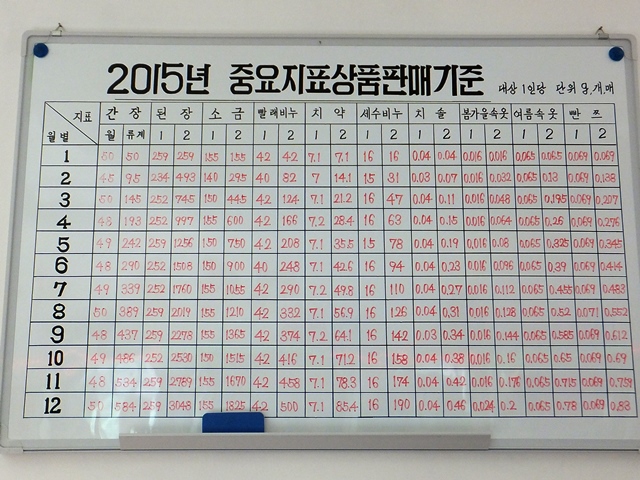 2015년 중요지표상품판매기준 대상 1인당 단위 g,개,매
지표 간장 된장 소금 빨래비누 치약 세수비누 치솔 봄가을속옷 여름속옷 빤쯔
월별 월 류계 1 2 1 2 1 2 1 2 1 2 1 2 1 2 1 2 1 2
1 50 50 259 259 155 155 42 42 7.1 7.1 16 16 0.04 0.04 0.016 0.016 0.065 0.065 0.069 0.069
2 45 95 234 493 140 295 40 82 7 14.1 15 31 0.03 0.07 0.016 0.032 0.065 0.13 0.069 0.138
3 50 145 252 745 150 445 42 124 7.1 21.2 16 47 0.04 0.11 0.016 0.048 0.065 0.195 0.069 0.207
4 48 193 252 997 155 600 42 166 7.2 28.4 16 63 0.04 0.15 0.016 0.064 0.065 0.26 0.069 0.276
5 49 242 259 1256 150 750 42 208 7.1 35.5 15 78 0.04 0.19 0.016 0.08 0.065 0.325 0.069 0.345
6 48 290 252 1508 150 900 40 248 7.1 42.6 16 94 0.04 0.23 0.016 0.096 0.065 0.39 0.069 0.414
7 49 339 252 1760 155 1055 42 290 7.2 49.8 16 110 0.04 0.27 0.016 0.112 0.065 0.455 0.069 0.483
8 50 389 259 2019 155 1210 42 332 7.1 56.9 16 126 0.04 0.31 0.016 0.128 0.065 0.52 0.071 0.552
9 48 437 259 2278 155 1365 42 374 7.2 64.1 16 142 0.03 0.34 0.016 0.144 0.065 0.585 0.069 0.612
10 49 486 252 2530 150 1515 42 416 7.1 71.2 16 158 0.04 0.38 0.016 0.16 0.065 0.65 0.069 0.69
11 48 534 259 2789 155 1670 42 458 7.1 78.3 16 174 0.04 0.42 0.016 0.176 0.065 0.715 0.069 0.759
12 50 584 259 3048 155 1825 42 500 7.1 85.4 16 190 0.04 0.46 0.024 0.2 0.065 0.78 0.069 0.83